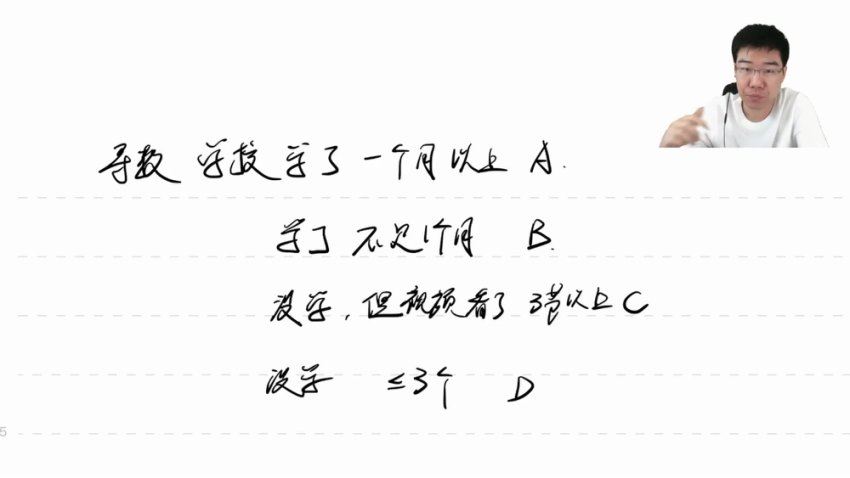 导数 学校学了一个月以上 A.
学了 不足1个月 B.
没学，但视频看了 3节以上 C
没学 ≤3个 D
5